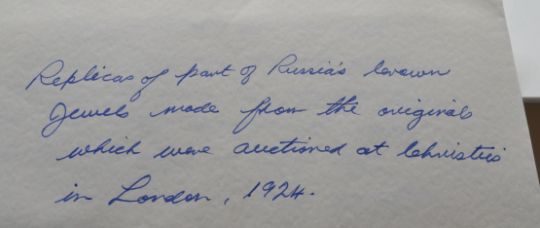 Replicas of part of Russia's Crown
Jewels made from the originals
which were auctioned at Christies
in London, 1924.